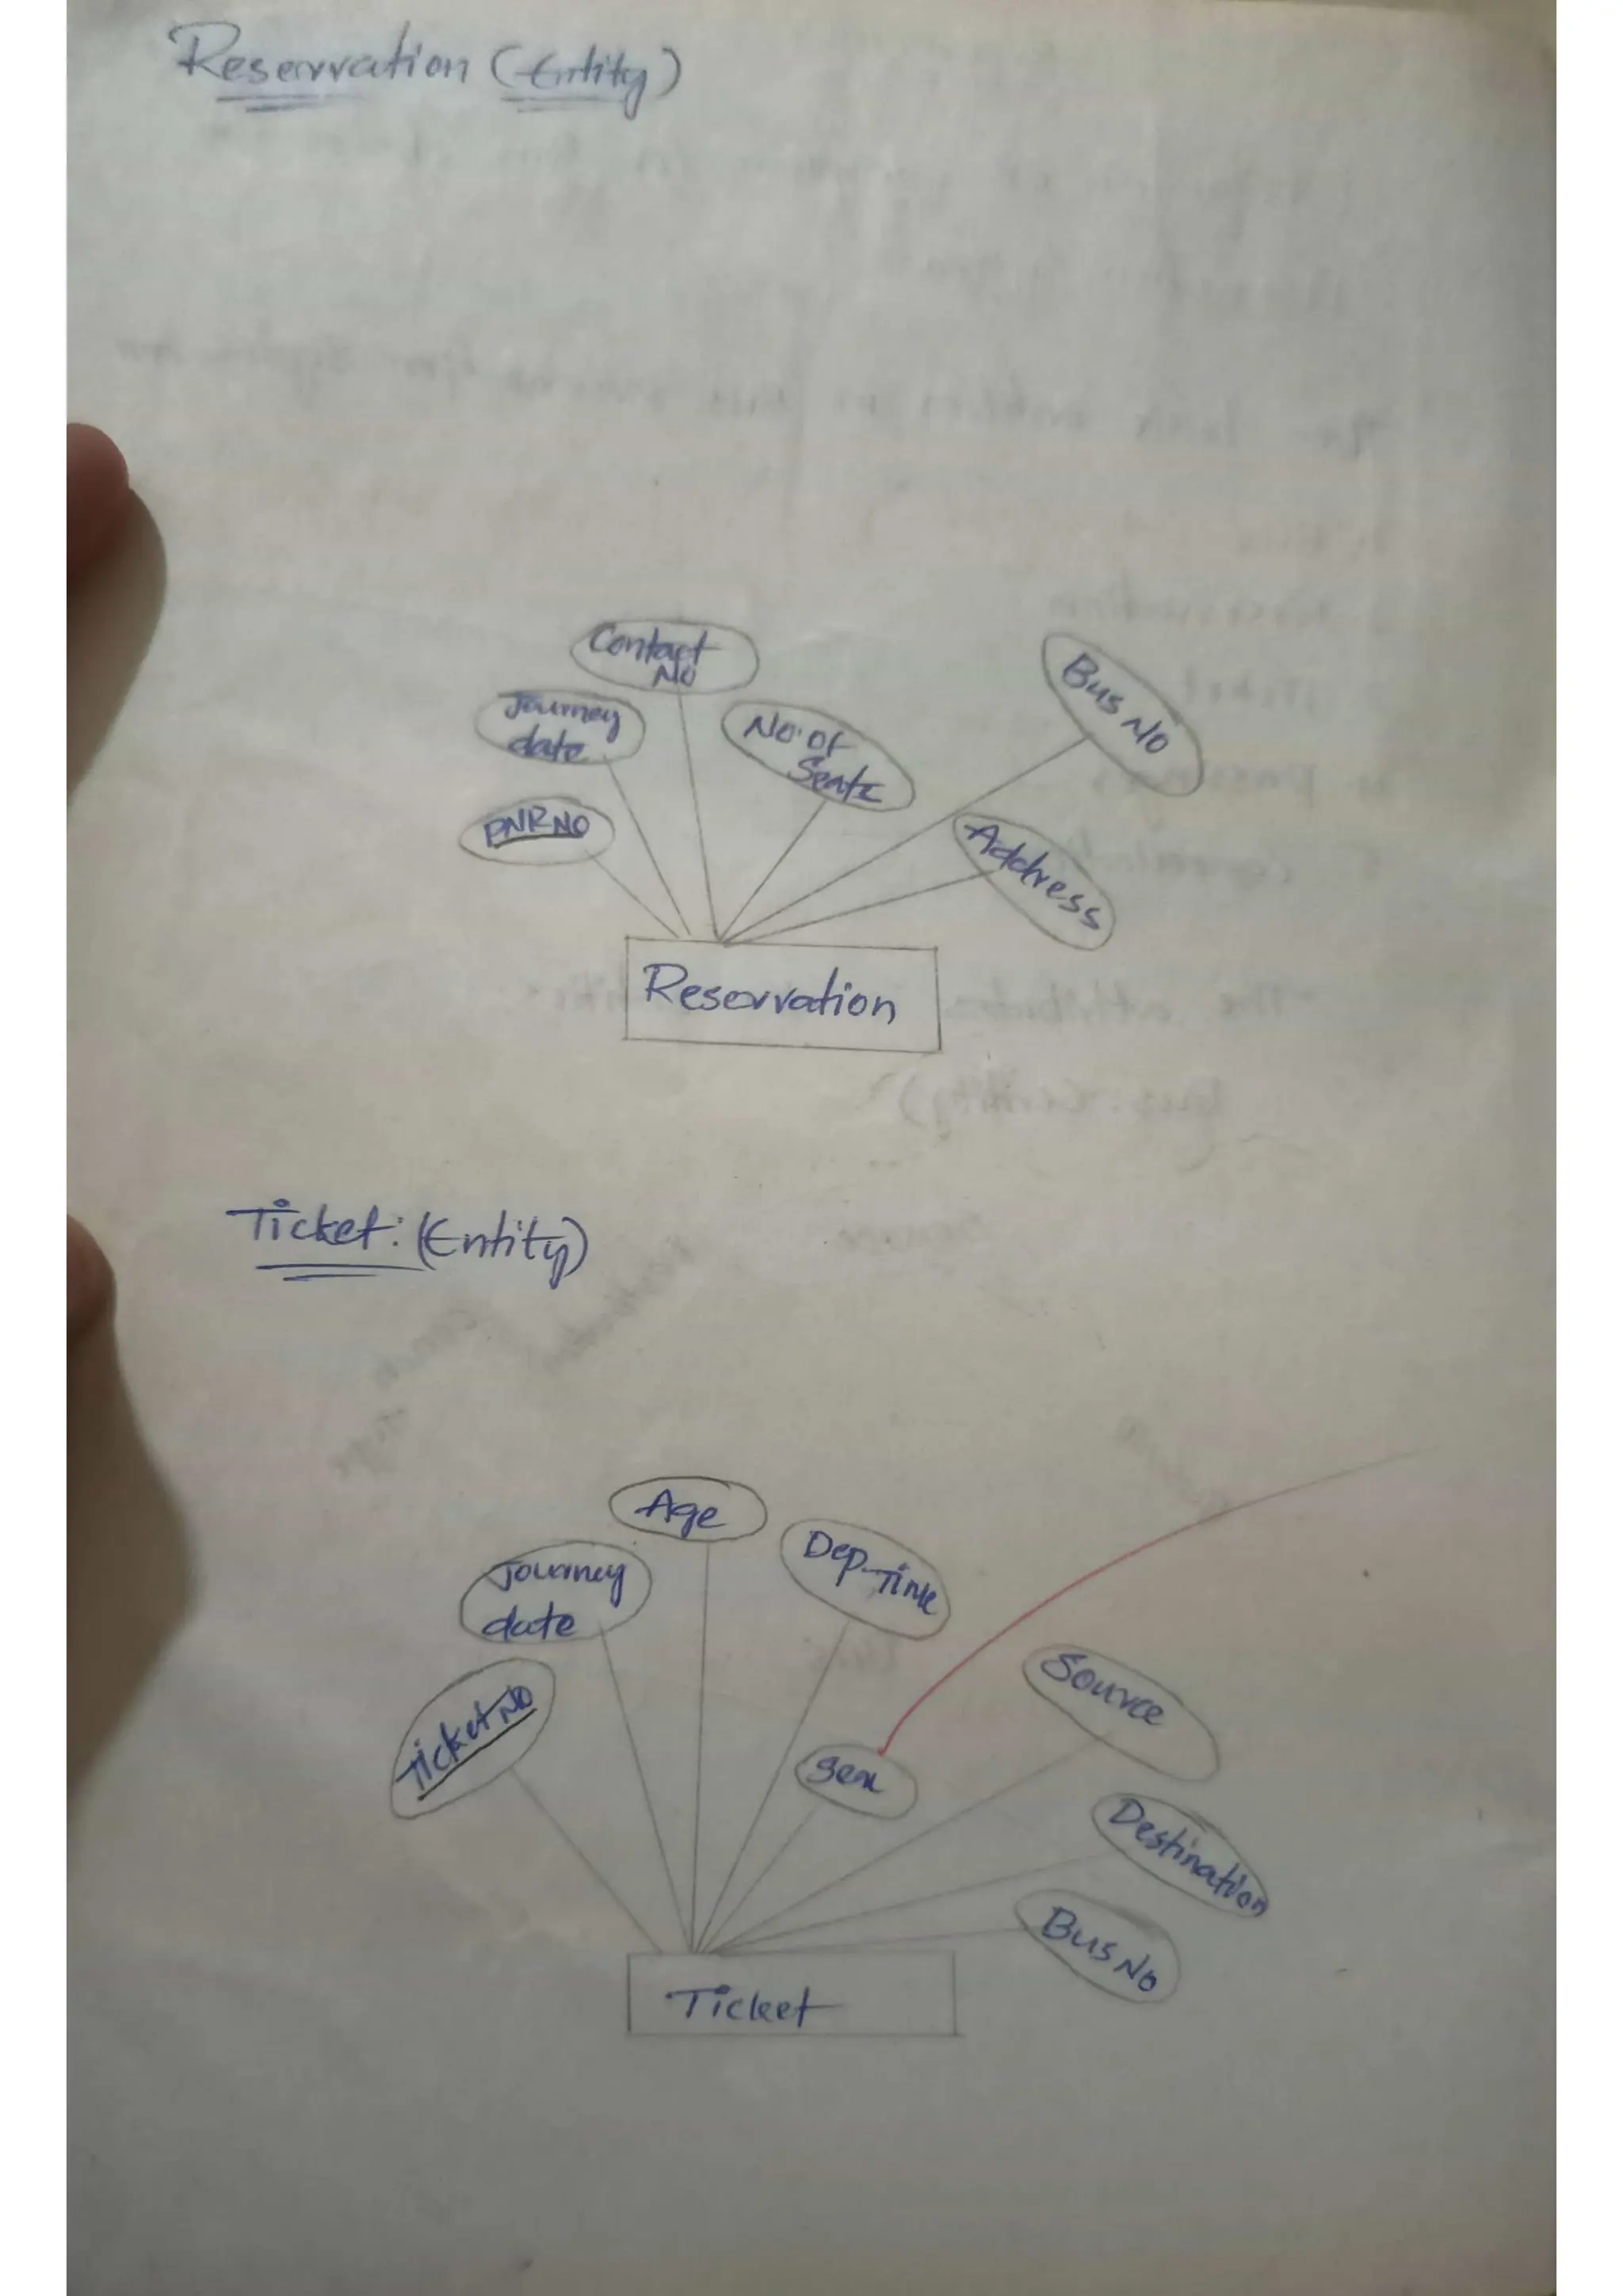 Reservation (Entity)
Contact
No
Journey
date
No. of
Seats
Bus No
PNR NO
Address
Reservation
Ticket: (Entity)
Age
Journey
date
Dep-Time
Source
Ticket No
Sex
Destination
Bus No
Ticket